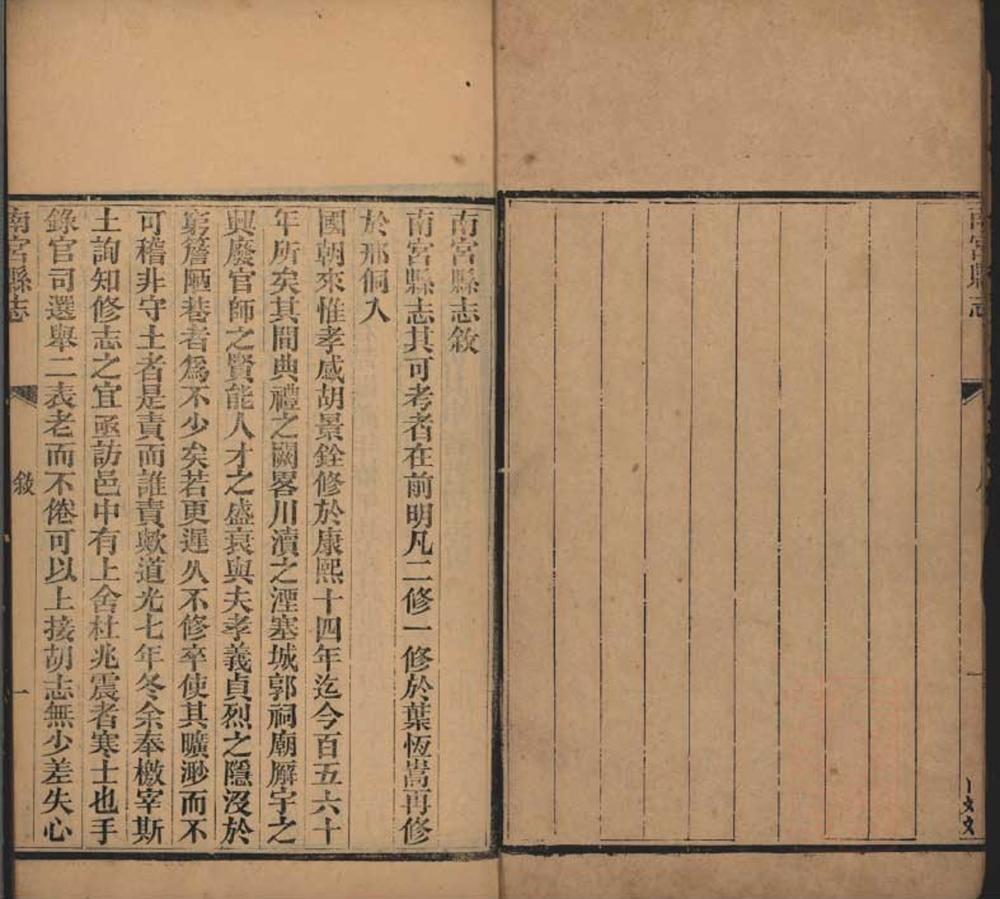 南宮縣志
南宮縣志敘
南宮縣志其可考者在前明凡二修一修於葉恆嵩再修
於邢侗入
國朝來惟孝感胡景銓修於康熙十四年迄今百五六十
年所矣其間典禮之闕畧川瀆之湮塞城郭祠廟廨宇之
興廢官師之賢能人才之盛衰與夫孝義貞烈之隱沒於
窮簷陋巷者爲不少矣若更遲久不修卒使其曠渺而不
可稽非守土者是責而誰責歟道光七年冬余奉檄宰斯
土詢知修志之宜亟訪邑中有上舍杜兆震者寒士也手
錄官司選舉二表老而不倦可以上接胡志無少差失心
南宮縣志 敘 一